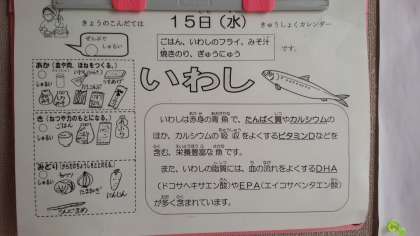 きょうのこんだては
１５日（水）
きゅうしょくカレンダー
ぜんぶで
しゅるい
ごはん、いわしのフライ、みそ汁
焼きのり、ぎゅうにゅう
です。
いわし
あか（血や肉、ほねをつくる。）
しゅるい
き（ねつや力のもとになる。）
しゅるい
ごはん
みどり（からだのちょうしをととのえる。）
しゅるい
たまねぎ
にんじん
いわしは赤身の青魚で、たんぱく質やカルシウムの
ほか、カルシウムの吸収をよくするビタミンＤなどを
含む、栄養豊富な魚です。
また、いわしの脂質には、血の流れをよくするＤＨＡ
（ドコサヘキサエン酸）やＥＰＡ（エイコサペンタエン酸）
が多く含まれています。